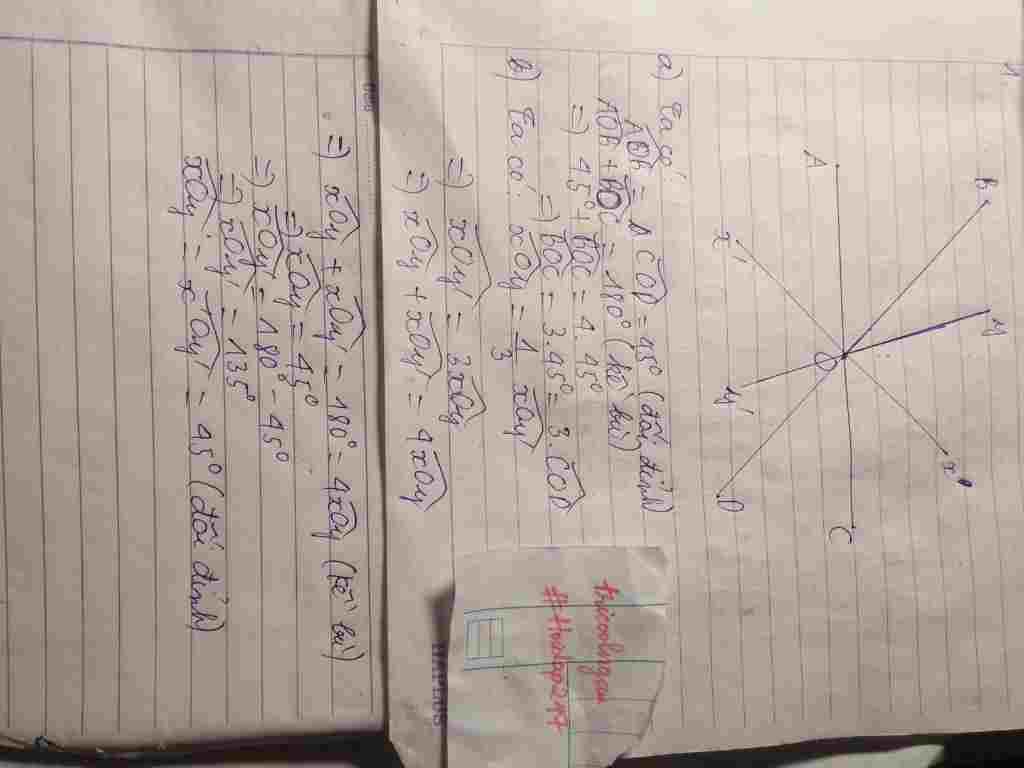 1,
B
y
x
A
O
C
x'
y'
D
a) Ta có
AOB = COD = 45° (đối đỉnh)
AOB + BOC = 180° (kề bù)
=) 45° + BOC = 4. 45°
=) BOC = 3.45° = 3.COD
b) Ta có: xOy = 1/3 xOy'
=) xOy' = 3xOy
=) xOy + xOy' = 4xOy
=) xOy + xOy' = 180° = 4xOy (kề bù)
=) xOy = 45°
=) xOy' = 180° - 45°
=) xOy' = 135°
xOy = x'Oy' = 45° (đối đỉnh)
#Hoidap247